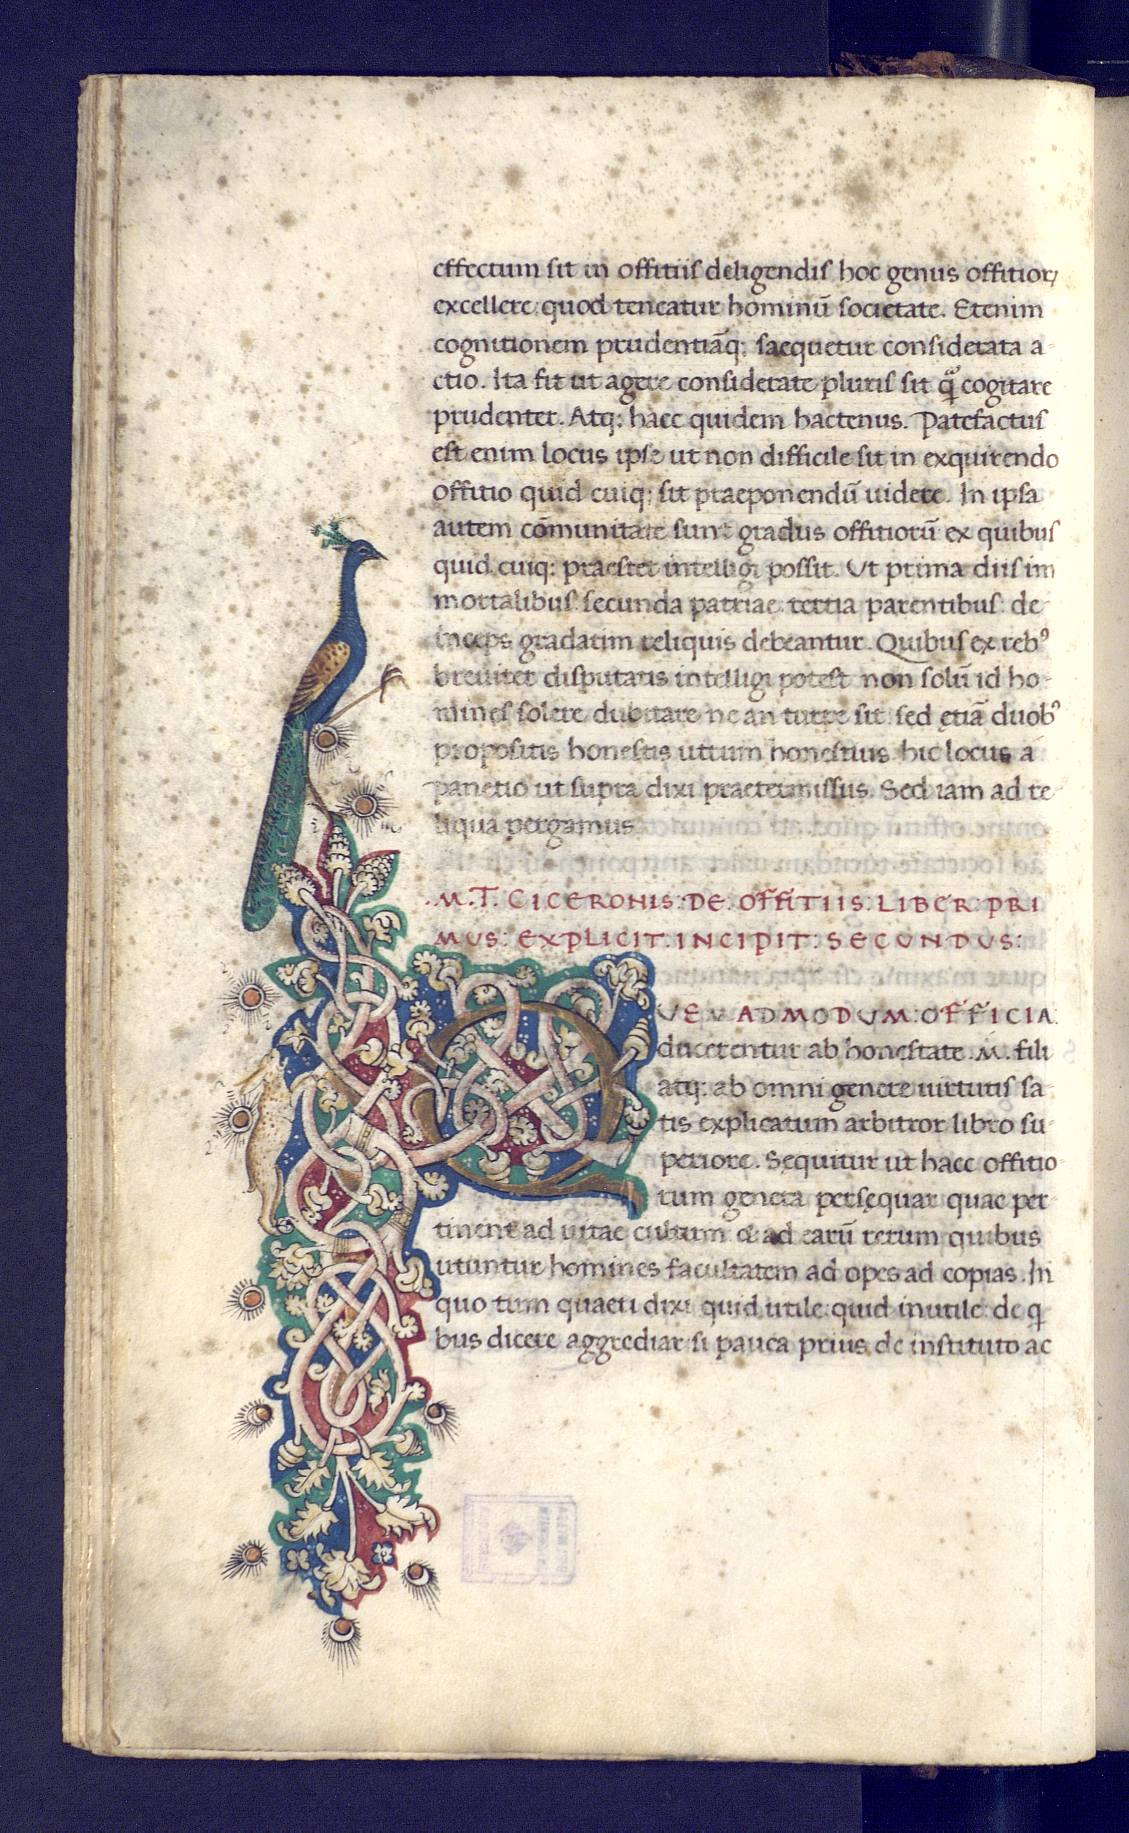 effectum sit in offitiis deligendis hoc genus offitioꝝ
excellere quod teneatur hominũ societate. Etenim
cognitionem prudentiãq; saequetur considerata a-
ctio. Ita fit ut agere considerate pluris sit q̃ cogitare
prudenter. Atq; haec quidem hactenus. Patefactus
est enim locus ipse ut non difficile sit in exquirendo
offitio quid cuiq; sit praeponendũ uidere. In ipsa
autem cõmunitate sunt gradus offitiorũ ex quibus
quid cuiq; praestet intelligi possit. Ut prima diis im
mortalibus: secunda patriae: tertia parentibus: de
inceps gradatim reliquis debeantur. Quibus ex rebꝰ
breuiter disputatis intelligi potest non solũ id ho-
mines solere dubitare ne an turpe sit: sed etiã duobꝰ
propositis honestis utrum honestius. hic locus a
panetio ut supra dixi praetermissus. Sed iam ad re
liqua pergamus
.M.T. CICERONIS: DE. OFFITIIS: LIBER: PRI
MUS: EXPLICIT: INCIPIT: SECUNDUS:
QUEMADMODUM: OFFICIA
ducerentur ab honestate .M. fili
atq; ab omni genere uirtutis sa-
tis explicatum arbitror libro su-
periore. Sequitur ut haec offitio
rum genera persequar quae per-
tinent ad uitae cultum & ad earũ rerum quibus
utuntur homines facultatem ad opes ad copias. In
quo tum quaeri dixi quid utile: quid inutile: de q
bus dicere aggrediar si pauca prius de instituto ac